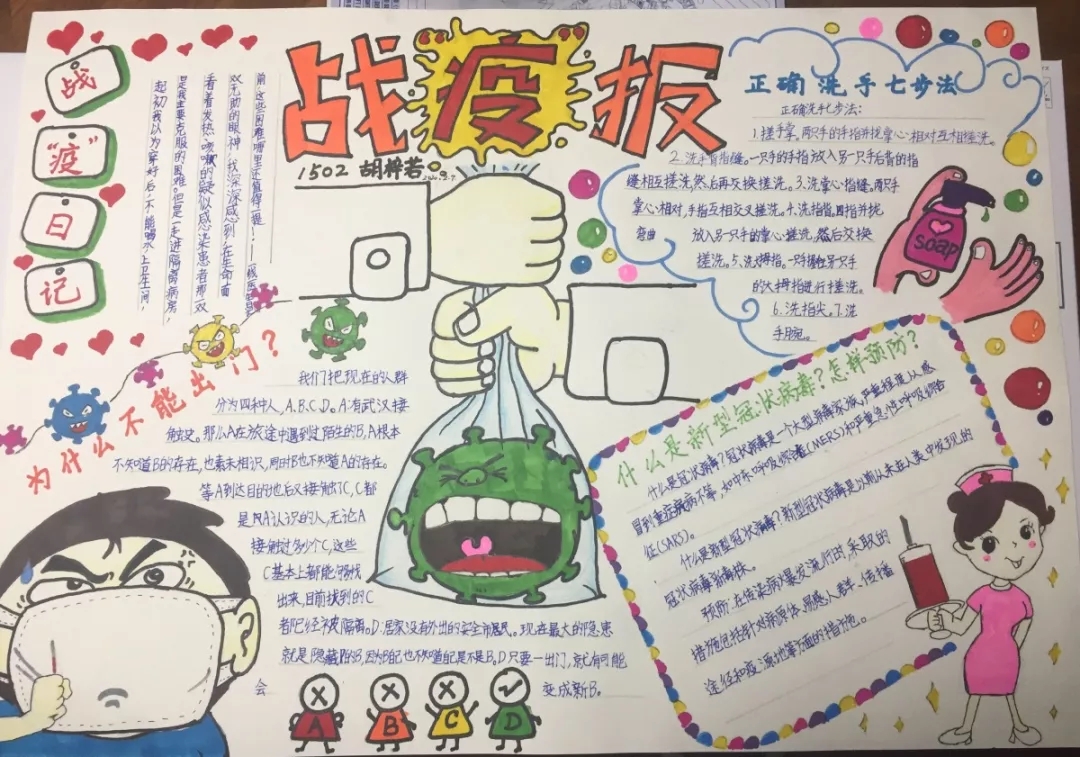 战疫报
1502 胡梓若
战
“疫”
日
记
起初我以为穿好后,不能喝水上卫生间,
是我主要克服的困难。但是一走进隔离病房,
看着发热、咳嗽的疑似感染患者那一双
双无助的眼神,我深深感到,在生命面
前,这些困难哪里还值得一提……
正确洗手七步法
正确洗手七步法:
1.搓手掌,两只手的手指并拢掌心相对互相搓洗。
2.洗手背指缝。一只手的手指放入另一只手后背的指
缝相互搓洗,然后再交换搓洗。3.洗掌心指缝。两只手
掌心相对,手指互相交叉搓洗。4.洗指背。四指并拢
弯曲 放入另一只手的掌心搓洗,然后交换
搓洗。5、洗大拇指。一只手握住另一只手
的大拇指进行搓洗。
6.洗指尖。7.洗
手腕。
soap
为什么不能出门?
我们把现在的人群
分为四种人,A.B.C.D。A:有武汉接
触史。那么A在旅途中遇到过陌生的B,A根本
不知道B的存在,也素未相识,同时B也不知道A的存在。
等A到达目的地后又接触了C,C都
是用A认识的人,无论A
接触过多少个C,这些
C基本上都能够找
出来,目前找到的C
都已经被隔离。D:居家没有外出的安全市民。现在最大的隐患
就是隐藏的B,因为B自己也不知道自己是不是B,D只要一出门,就有可能
会 变成新B。
A
B
C
D
什么是新型冠状病毒?怎样预防?
什么是冠状病毒?冠状病毒是一个大型病毒家族,严重程度从感
冒到重症疾病不等,如中东呼吸综合征(MERS)和严重急性呼吸综合
征(SARS)。
什么是新型冠状病毒?新型冠状病毒是以前从未在人类中发现的
冠状病毒新毒株。
预防:在传染病爆发流行时,采取的
措施包括针对病原体、易感人群、传播
途径和疫源地等方面的措施。